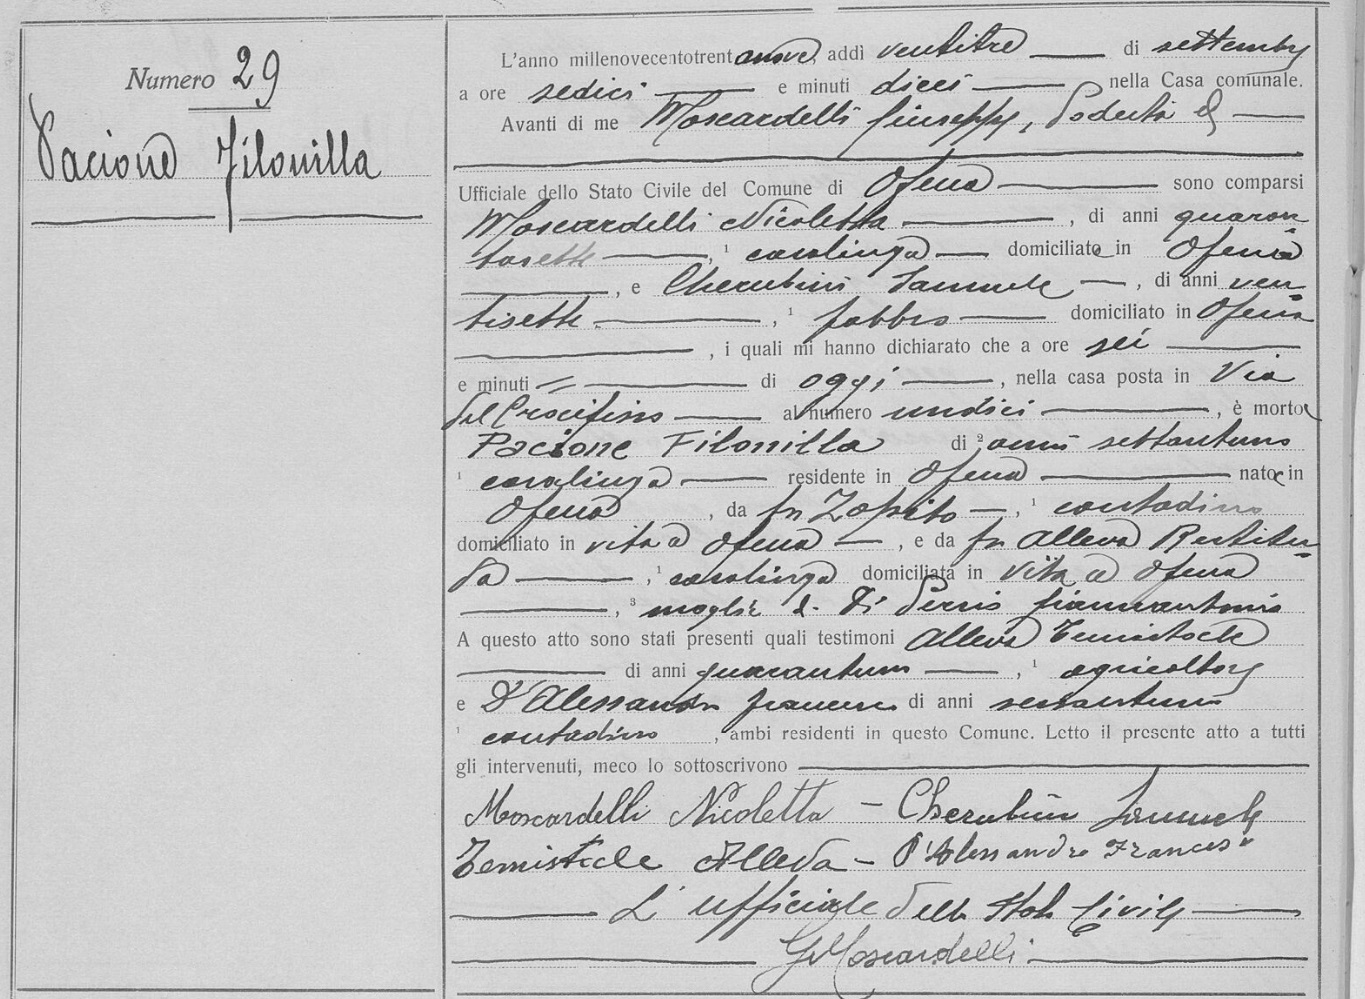 Numero 29
Pacione Filonilla
L'anno millenovecentotrentanove, addì ventitre di settembre
a ore sedici e minuti dieci nella Casa comunale.
Avanti di me Moscardelli Giuseppe, Podestà ed
Ufficiale dello Stato Civile del Comune di Ofena sono comparsi
Moscardelli Nicoletta, di anni quaran
tasette, ¹ casalinga domiciliata in Ofena
, e Cherubini Samuele, di anni ven
tisette, ¹ fabbro domiciliato in Ofena
, i quali mi hanno dichiarato che a ore sei
e minuti = di oggi, nella casa posta in Via
del Crocifisso al numero undici, è morta
Pacione Filonilla di ² anni settantuno
¹ casalinga residente in Ofena nata in
Ofena, da fu Zopito, ¹ contadino
domiciliato in vita a Ofena, e da fu Alleva Restitu=
ta, ¹ casalinga domiciliata in vita a Ofena
, ³ moglie di Di Persio Giannantonio
A questo atto sono stati presenti quali testimoni Alleva Temistocle
di anni quarantuno, ¹ agricoltore
e D'Alessandro Francesco di anni sessantuno
¹ contadino, ambi residenti in questo Comune. Letto il presente atto a tutti
gli intervenuti, meco lo sottoscrivono
Moscardelli Nicoletta – Cherubini Samuele
Temistocle Alleva – D'Alessandro Francesco
L'ufficiale dello Stato Civile
G Moscardelli